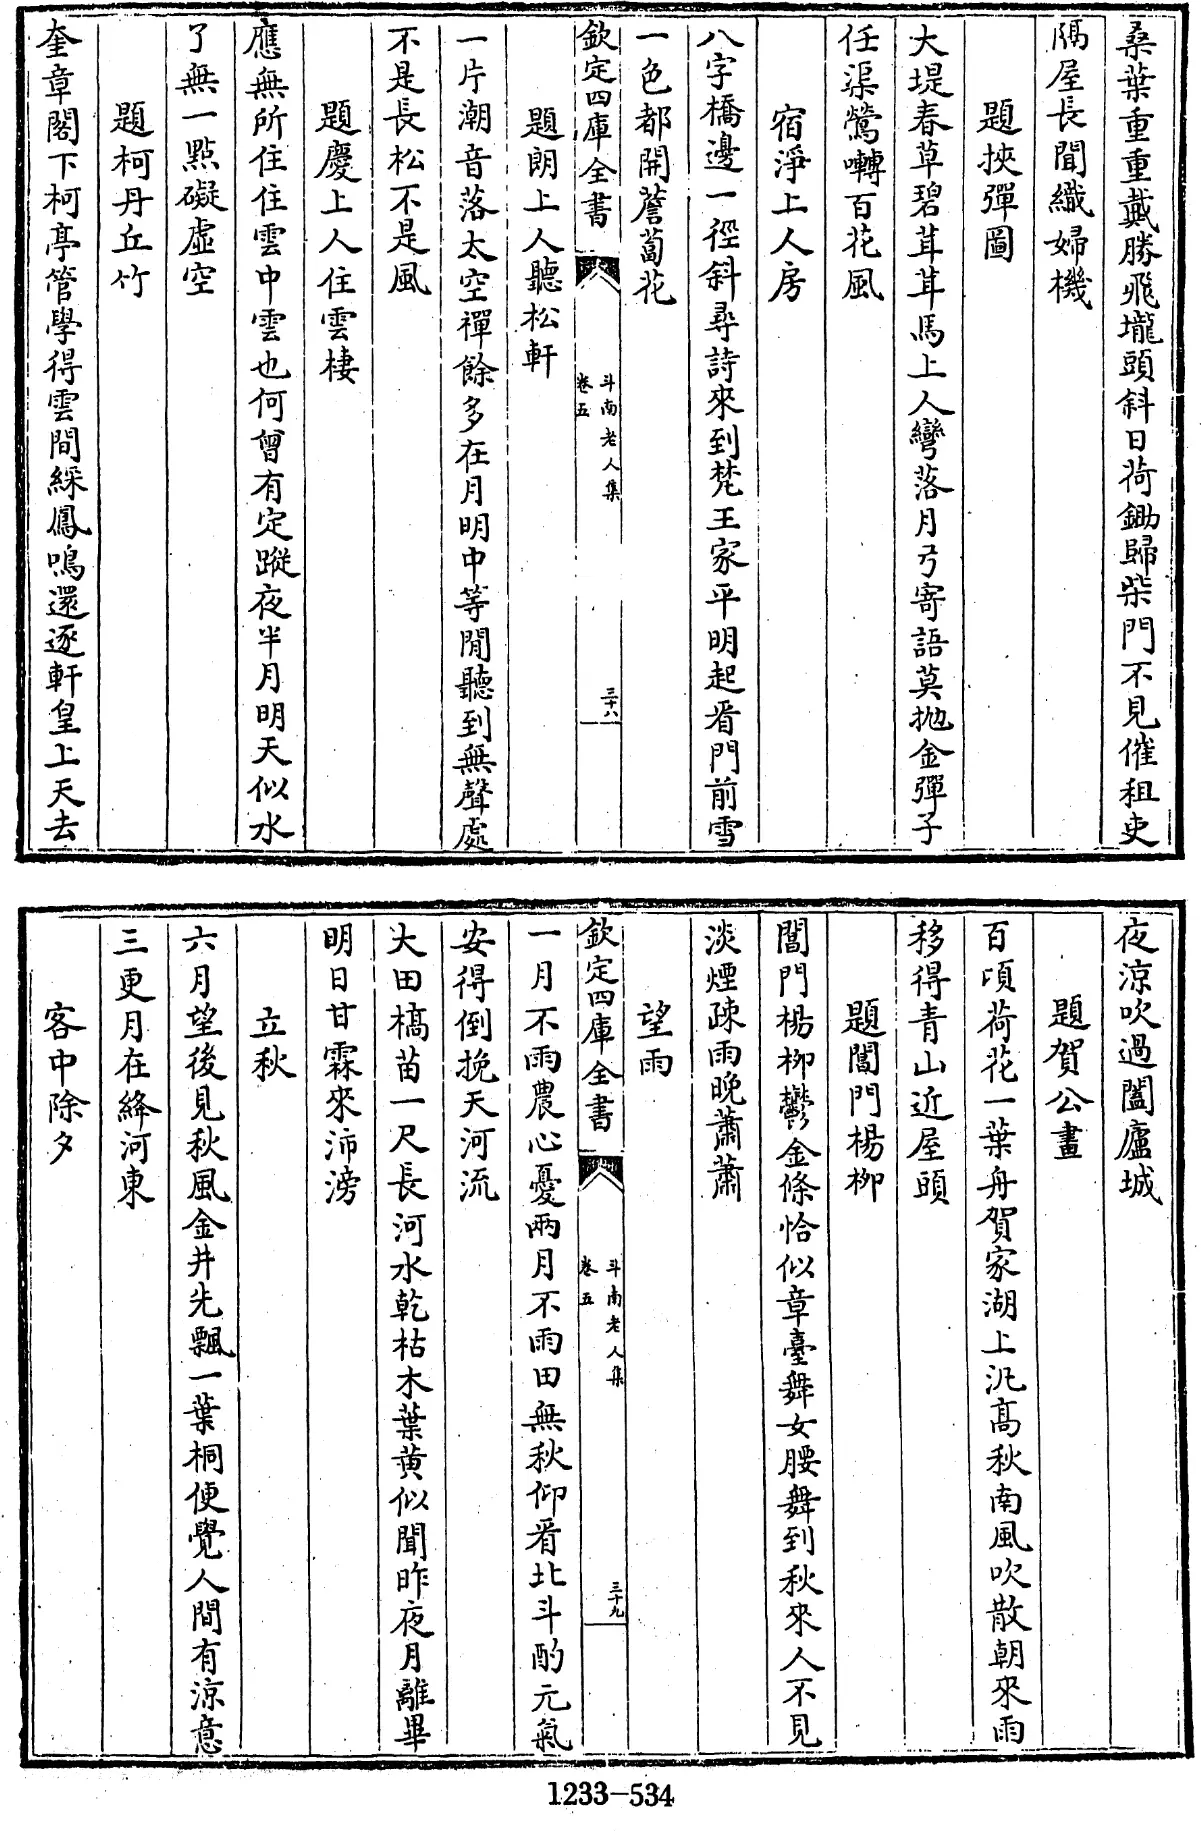 桑葉重重戴勝飛壠頭斜日荷鋤歸柴門不見催租吏
隔屋長聞織婦機
題挾彈圖
大堤春草碧茸茸馬上人彎落月弓寄語莫抛金彈子
任渠鶯囀百花風
宿淨上人房
八字橋邊一徑斜尋詩來到梵王家平明起看門前雪
一色都開薝蔔花
欽定四庫全書
斗南老人集
卷五
三十八
題朗上人聽松軒
一片潮音落太空禪餘多在月明中等閒聽到無聲處
不是長松不是風
題慶上人住雲棲
應無所住住雲中雲也何曾有定蹤夜半月明天似水
了無一點礙虛空
題柯丹丘竹
奎章閣下柯亭管學得雲間綵鳳鳴還逐軒皇上天去
夜涼吹過闔廬城
題賀公畫
百頃荷花一葉舟賀家湖上汎髙秋南風吹散朝來雨
移得青山近屋頭
題閶門楊柳
閶門楊柳鬱金條恰似章臺舞女腰舞到秋來人不見
淡煙疎雨晚蕭蕭
望雨
一月不雨農心憂兩月不雨田無秋仰看北斗酌元氣
欽定四庫全書
斗南老人集
卷五
三十九
安得倒挽天河流
大田槁苗一尺長河水乾枯木葉黄似聞昨夜月離畢
明日甘霖來沛滂
立秋
六月望後見秋風金井先飄一葉桐便覺人間有涼意
三更月在絳河東
客中除夕
1233-534